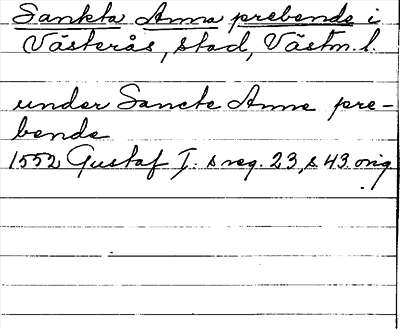 Sankta Anna prebende i
Västerås, stad, Västm. l.
under Sancte Anne pre-
bende
1552 Gustaf I:s reg. 23, s 43 orig.